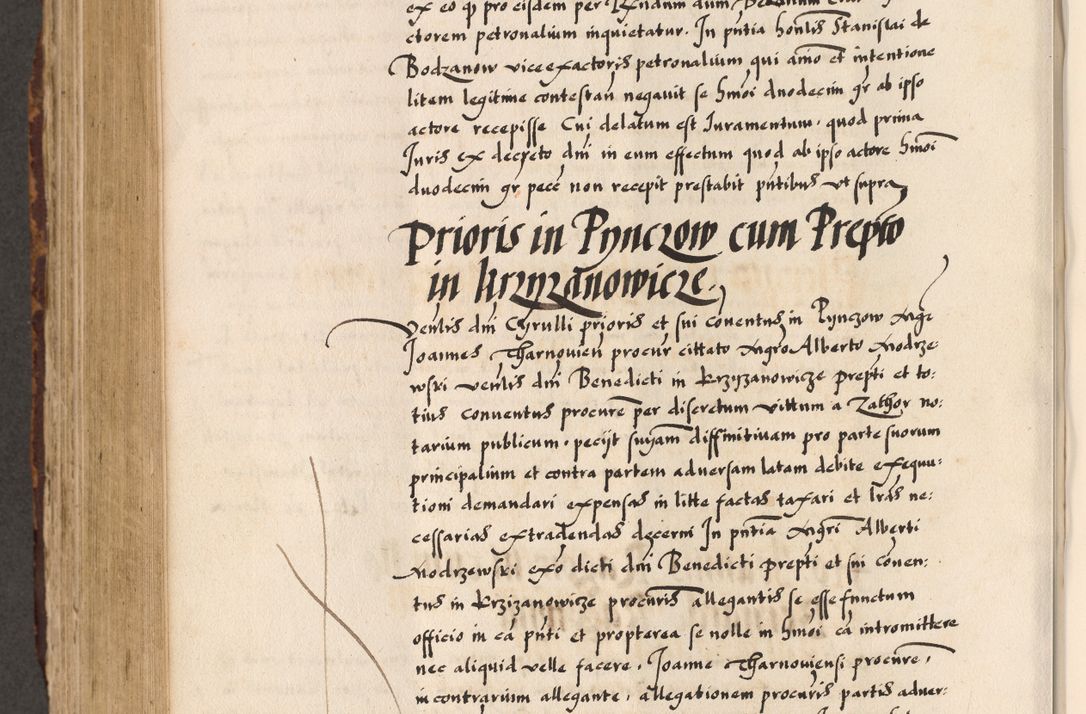 ex eo qd pro eisdem per
ctorem petronalium inquietatur. In pntia honlis Stanislai de
Bodzanow viceexactoris petronalium qui aīmo et intentione
litem legitime contestan negavit se hmōi duodecim gr ab ipso
actore recepisse Cui delatum est Iuramentum, quod prima
Iuris ex decreto dni in eum effectum quod ab ipso actore hmōi
duodecim gr pecc non recepit prestabit pntibus ut supra
Prioris in Pynczow cum Prepto
in krzyzanowicze.
Venlis dni Cyrulli prioris et sui conventus in Pynczow Mgr
Joannes Tharnovien procur cittato Mgro Alberto Modrze-
wski venlis dni Benedicti in Krzyzanowicze prepti et to:
tius conventus procure per discretum vittum a Zathor no:
tarium publicum. pecijt snjam diffinitivam pro parte suorum
principalium et contra partem adversam latam debite exequu-
tioni demandari expensas in litte factas taxari et lras ne:
cessarias extradendas decerni In pntia Mgri Alberti
Modrzewski exo dicti dni Benedicti prepti et sui conven:
tus in Krzizanowicze procuris allegantis se esse functum
officio in ca pnti et propterea se nolle in hmōi ca intromittere
nec aliquid velle facere, Joanne Tharnoviensi procure,
in contrarium allegante, allegationem procuris partis adver: